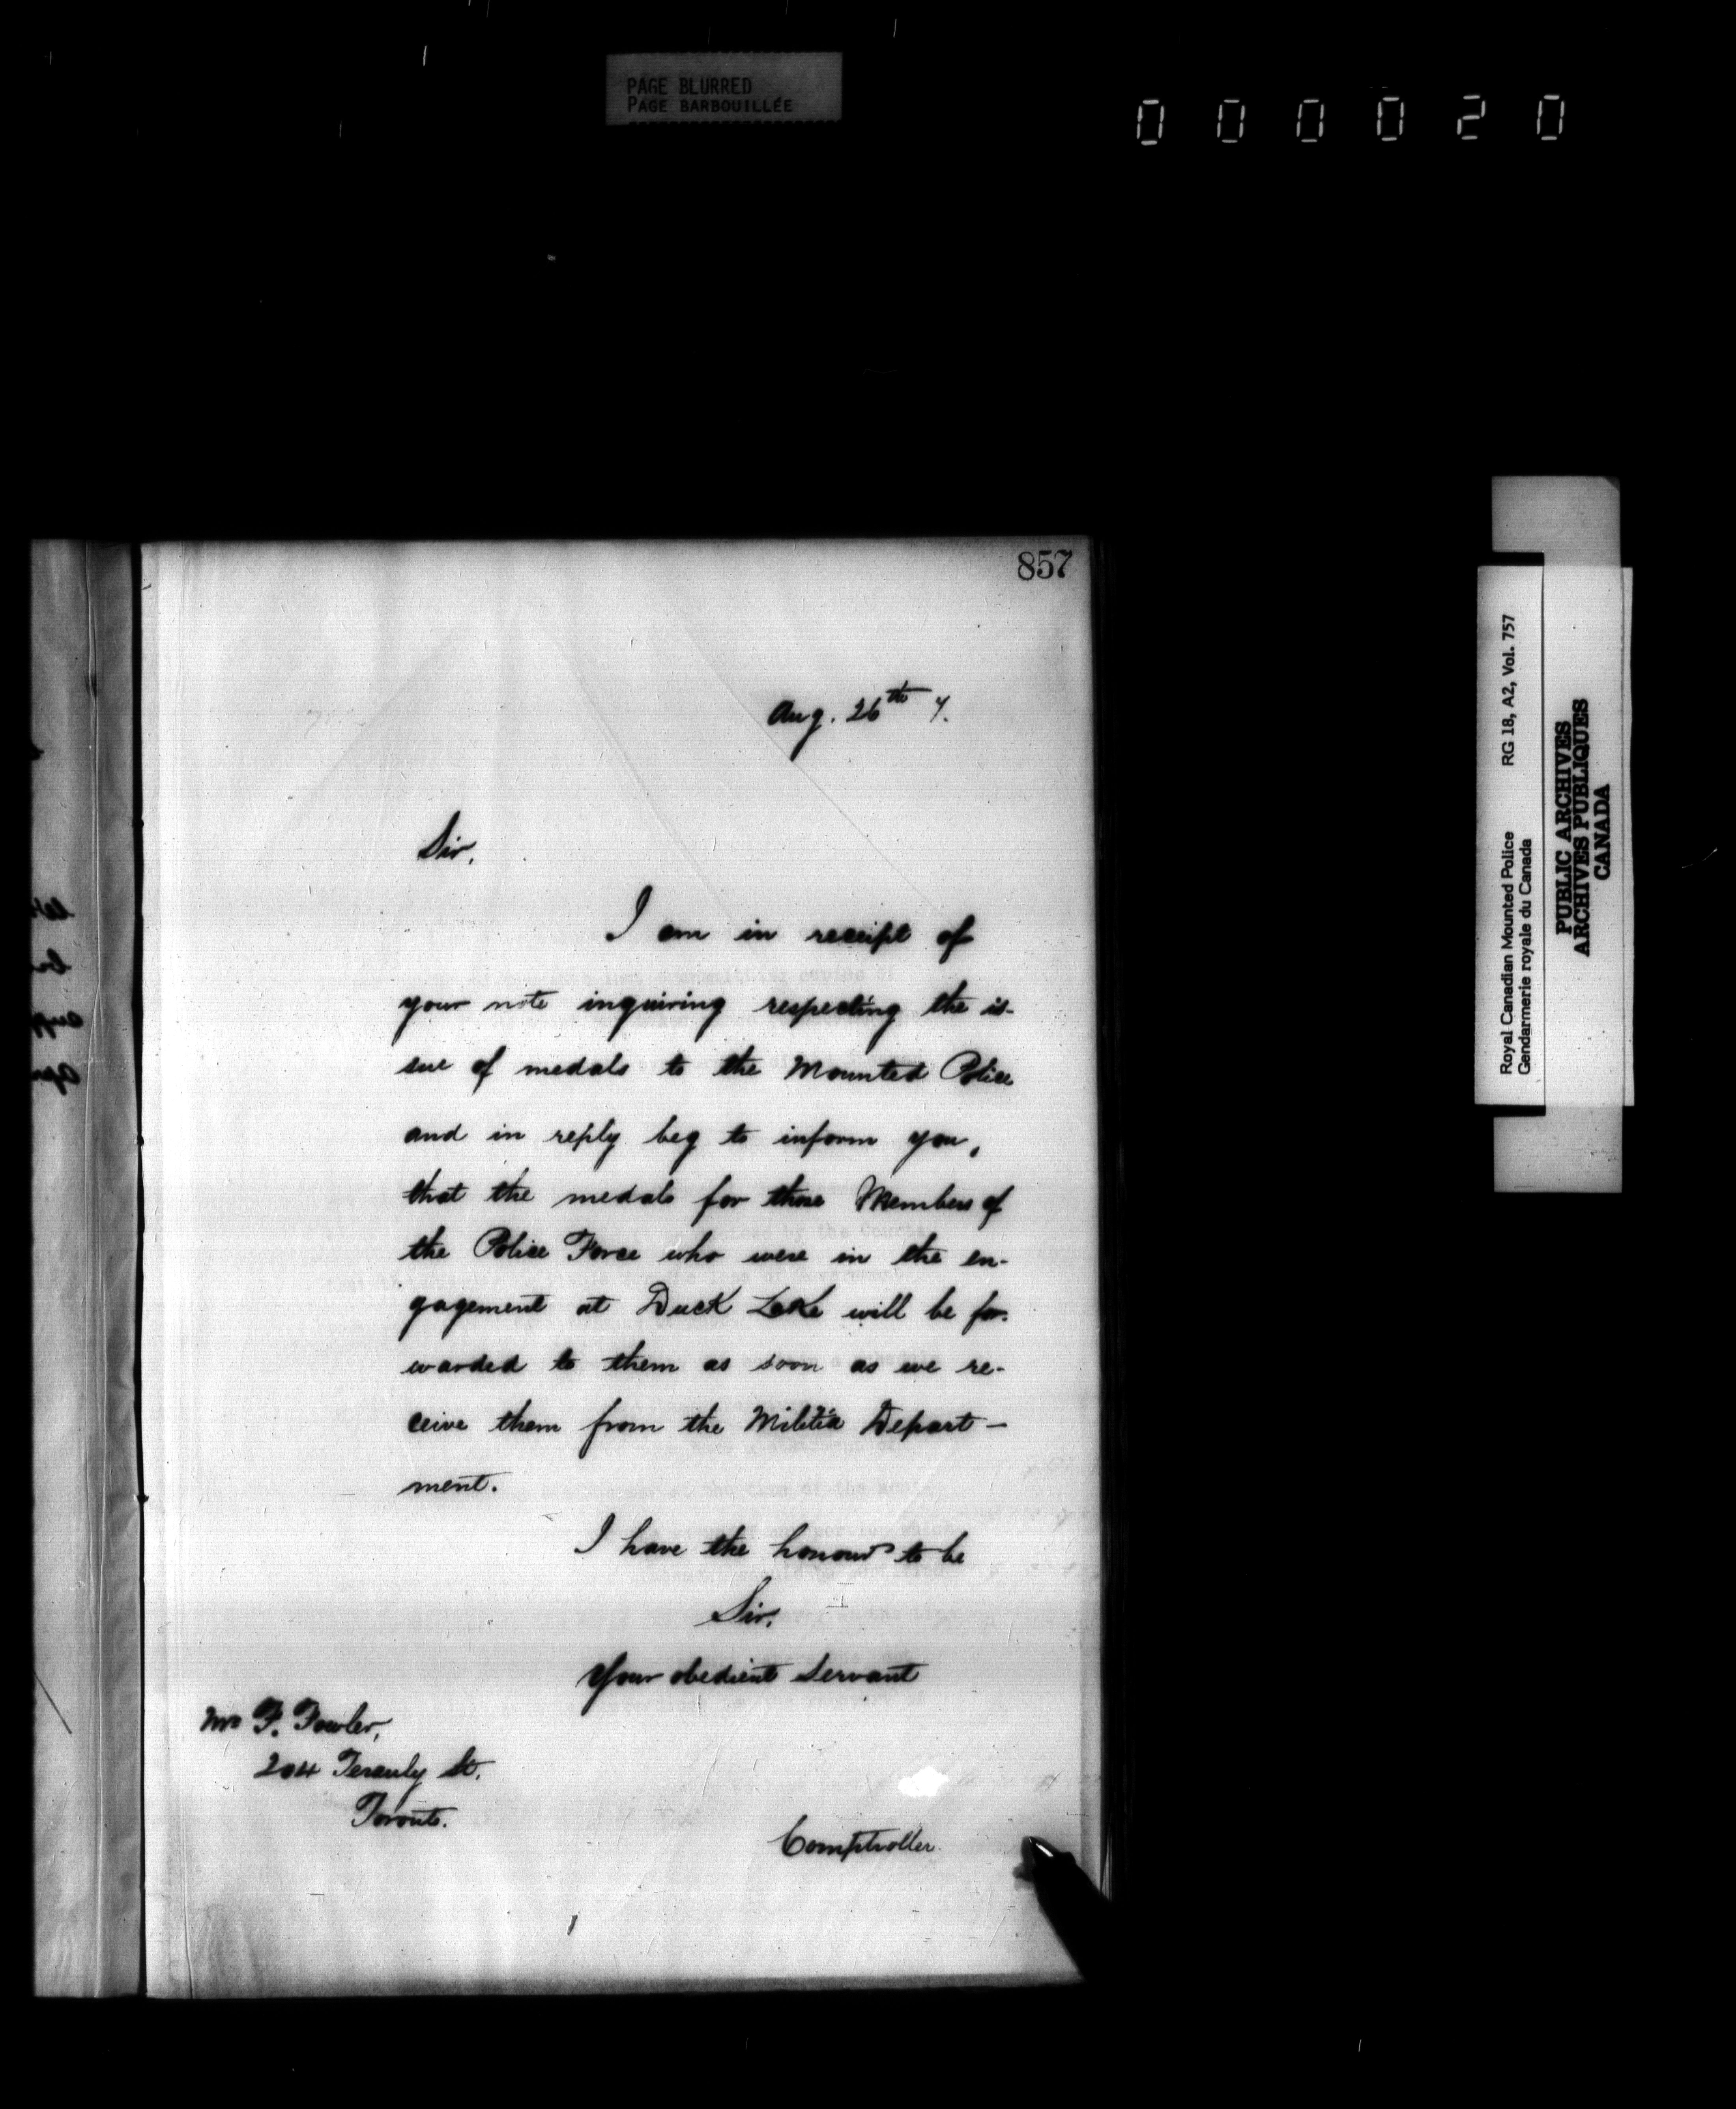 PAGE BLURRED
PAGE BARBOUILLÉE
000020
857
Aug. 26th 7.
Sir,
I am in receipt of
your note inquiring respecting the is-
sue of medals to the Mounted Police
and in reply beg to inform you,
that the medals for those Members of
the Police Force who were in the en-
gagement at Duck Lake will be for-
warded to them as soon as we re-
ceive them from the Militia Depart-
ment.
I have the honour to be
Sir,
Your obedient Servant
Mr F. Fowler,
204 Terauly St.
Toronto.
Comptroller.
Royal Canadian Mounted Police RG 18, A2, Vol. 757
Gendarmerie royale du Canada
PUBLIC ARCHIVES
ARCHIVES PUBLIQUES
CANADA